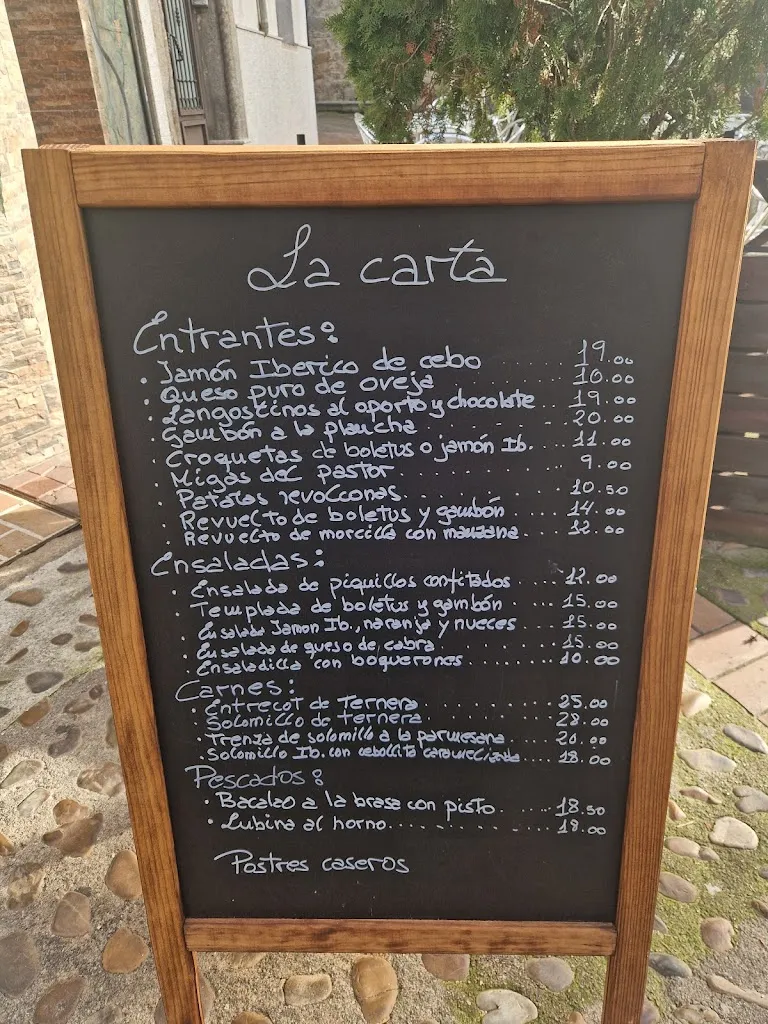 La carta
Entrantes:
· Jamón Iberico de cebo ....... 19.00
· Queso puro de oveja ....... 10.00
· Langostinos al oporto y chocolate .. 19.00
· Gambón a la plancha ....... 20.00
· Croquetas de boletus o jamón Ib. ... 11.00
· Migas del pastor ....... 9.00
· Patatas revolconas ....... 10.50
· Revuelto de boletus y gambón .... 14.00
· Revuelto de morcilla con manzana .. 12.00
Ensaladas:
· Ensalada de piquillos confitados .... 12.00
· Templada de boletus y gambón .... 15.00
· Ensalada Jamon Ib., naranja y nueces .... 15.00
· Ensalada de queso de cabra ....... 15.00
· Ensaladilla con boquerones ....... 10.00
Carnes:
· Entrecot de Ternera ....... 25.00
· Solomillo de ternera ....... 28.00
· Trenza de solomillo a la parmesana .... 20.00
· Solomillo Ib. con cebollita caramelizada .... 18.00
Pescados:
· Bacalao a la brasa con pisto ..... 18.50
· Lubina al horno ....... 18.00
Postres caseros